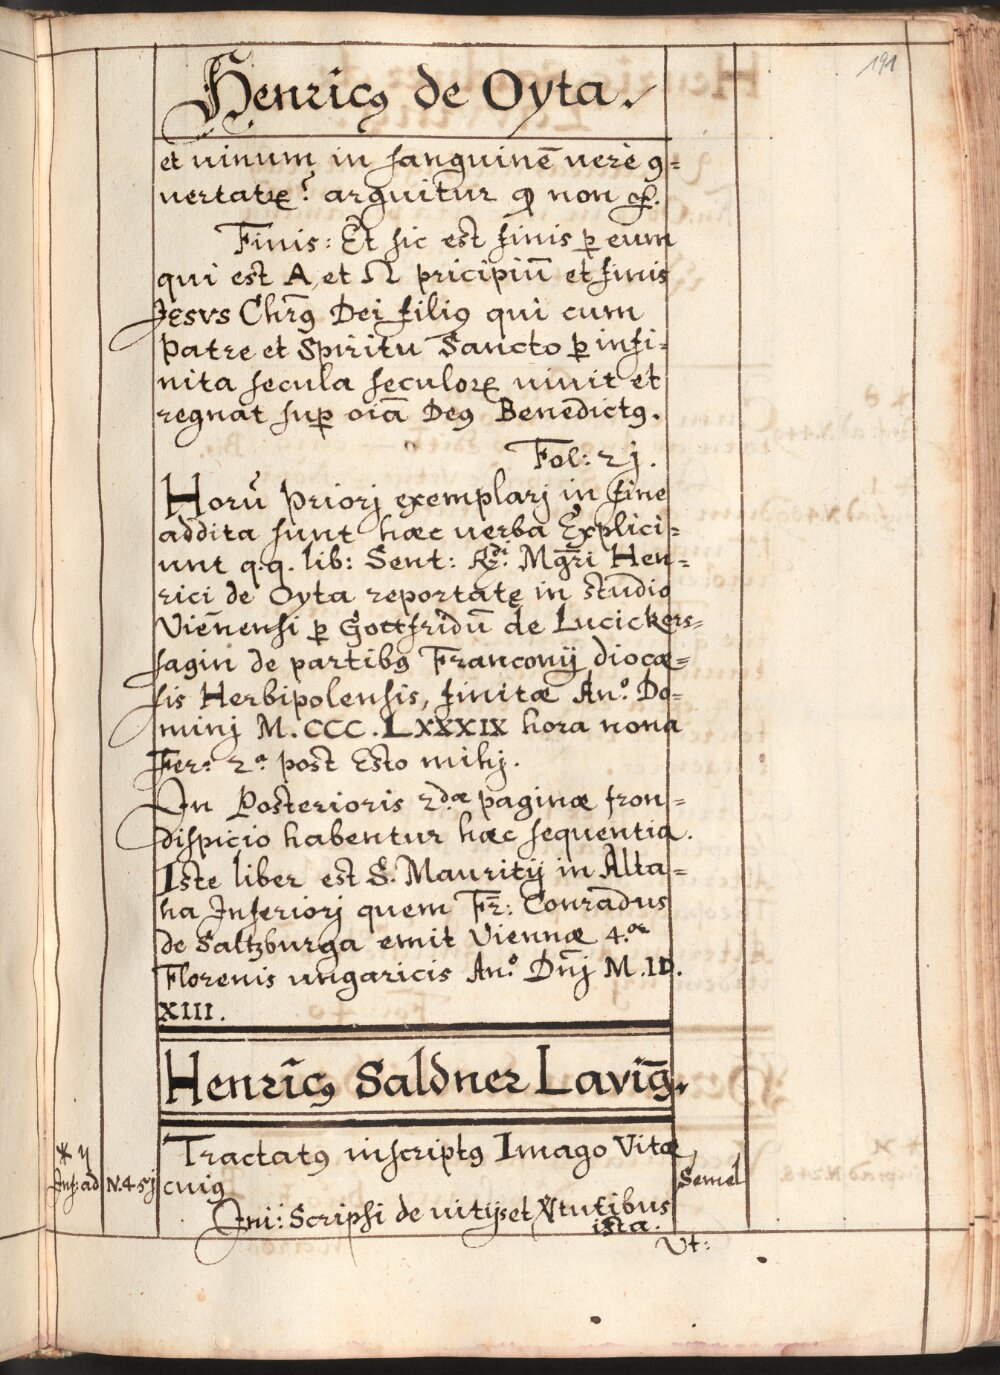 191
Henricꝯ de Oyta.
et uinum in sanguinē uerè ꝯ=
uertatꝝ? arguitur ꝙ non
Finis: Et sic est finis ꝑ eum
qui est A et Ω pricipiū et finis
Jesvs Chr̄ꝯ Dei filiꝯ qui cum
Patre et Spiritu Sancto ꝑ infi=
nita secula seculoꝝ uiuit et
regnat suꝑ oīa Deꝯ Benedictꝯ.
Fol: 2j.
Horū Priorj exemplarj in fine
addita sunt hæc uerba Explici=
unt q.q. lib: Sent: Rdi Mgr̄i Hen=
rici de Oyta reportatę in studio
Vieñensi ꝑ Gottfridū de Lucickers=
hagin de partibꝯ Franconij diocæ=
sis Herbipolensis, finitæ An°. Do=
minj M.CCC.LXXXIX hora nona
Fer: 2a post Esto mihj.
In Posterioris 2dæ paginæ fron=
dispicio habentur hæc sequentia.
Iste liber est S. Mauritij in Alta=
ha Inferiorj quem Fr̄: Conradus
de Saltzburga emit Viennæ 4.or
Florenis ungaricis An°. Dn̄j M.ID.
XIII.
Henrīcꝯ Saldner Lavīg.
Tractatꝯ inscriptꝯ Imago Vitæ,
* η Inf: ad N.451 cuiꝯ Semel
Ini: Scripsi de uitijs et Vtutibus
ista.
Vt: